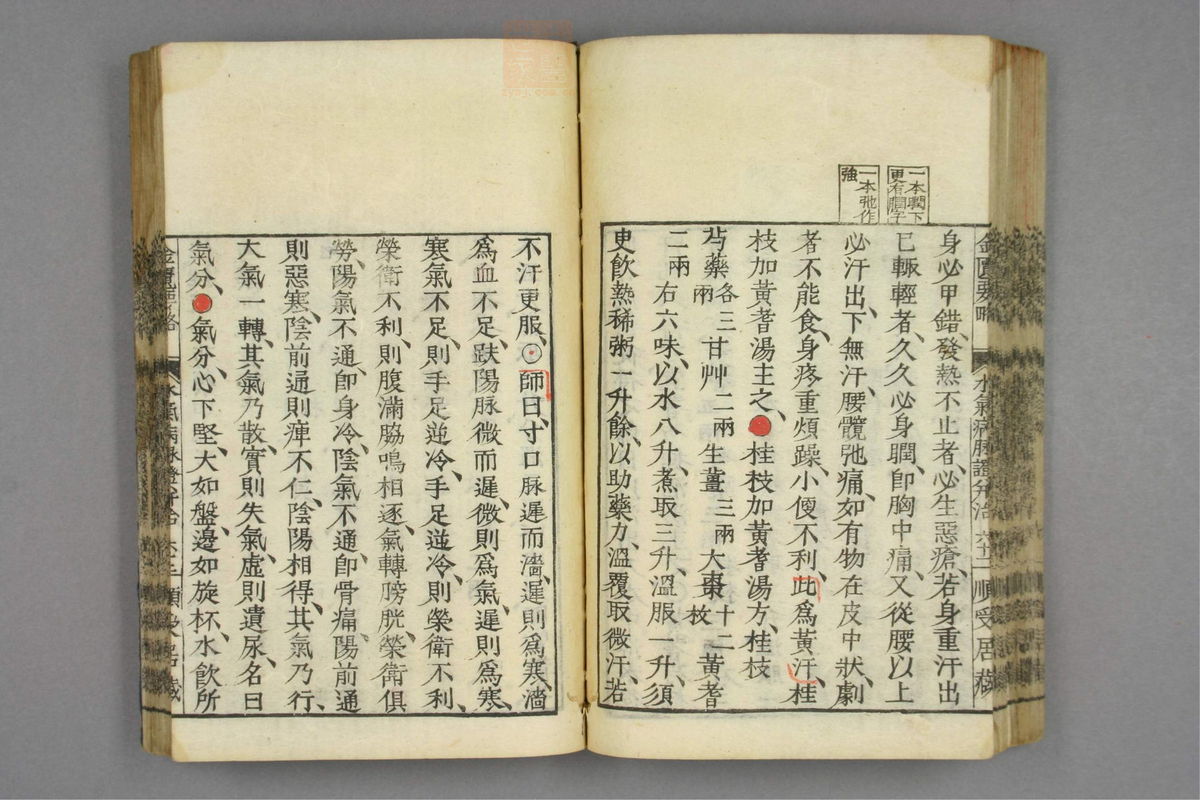 一本瞤下
更有瞤字
一本弛作
強
金匱要略 水氣病脉證并治 六十二 順受居藏
身必甲錯、發熱不止者、必生惡瘡、若身重汗出
已輒輕者、久久必身瞤、卽胸中痛、又從腰以上
必汗出、下無汗、腰髖弛痛、如有物在皮中狀、劇
者不能食、身疼重煩躁、小便不利、此爲黃汗、桂
枝加黃耆湯主之、●桂枝加黃耆湯方、桂枝
芍藥各三兩 甘艸二兩 生薑三兩 大棗十二枚 黃耆
二兩 右六味、以水八升、煮取三升、溫服一升、須
臾飲熱稀粥一升餘、以助藥力、溫覆取微汗、若
不汗更服、〇師曰、寸口脉遲而濇、遲則爲寒、濇
爲血不足、趺陽脉微而遲、微則爲氣、遲則爲寒、
寒氣不足、則手足逆冷、手足逆冷、則榮衛不利、
榮衛不利、則腹滿脇鳴相逐、氣轉膀胱、榮衛俱
勞、陽氣不通、卽身冷、陰氣不通、卽骨痛、陽前通
則惡寒、陰前通則痺不仁、陰陽相得、其氣乃行、
大氣一轉、其氣乃散、實則失氣、虛則遺尿、名曰
氣分、●氣分、心下堅、大如盤、邊如旋杯、水飲所
金匱要略 水氣病脉證并治